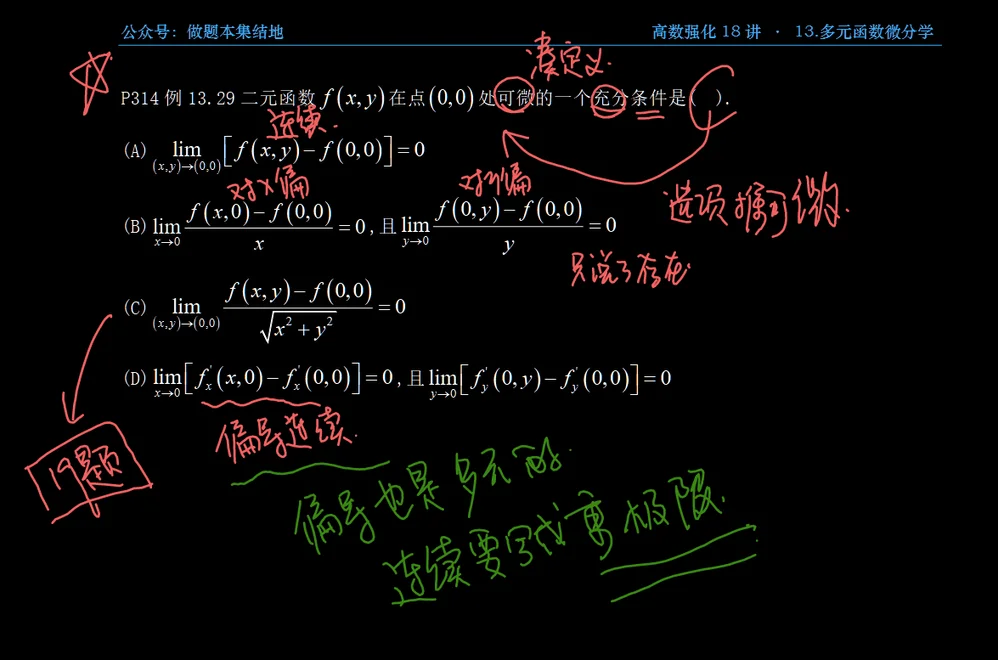 公众号：做题本集结地
高数强化 18 讲 · 13.多元函数微分学
凑定义
P314 例 13.29 二元函数 f(x,y) 在点 (0,0) 处可微的一个充分条件是( ).
连续.
(A) lim_{(x,y)→(0,0)} [f(x,y)−f(0,0)]=0
对x偏
对y偏
选项推可微.
(B) lim_{x→0} (f(x,0)−f(0,0))/x =0, 且 lim_{y→0} (f(0,y)−f(0,0))/y =0
只说了存在
(C) lim_{(x,y)→(0,0)} (f(x,y)−f(0,0))/√(x²+y²) =0
(D) lim_{x→0} [f′ₓ(x,0)−f′ₓ(0,0)]=0, 且 lim_{y→0} [f′_y(0,y)−f′_y(0,0)]=0
偏导连续.
19题
偏导也是多元的.
连续要写成重极限.